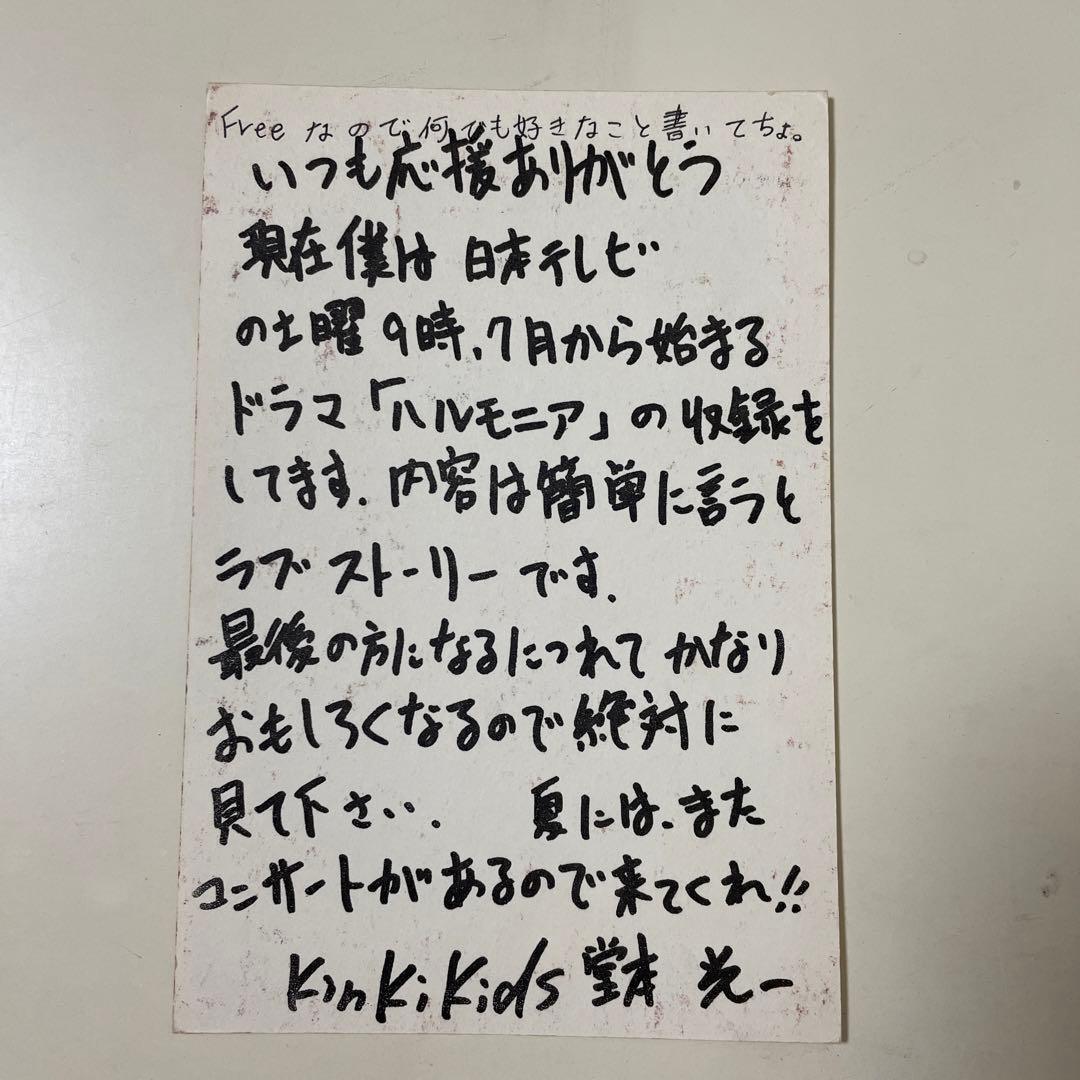 Free なので何でも好きなこと書いてちょ。
いつも応援ありがとう
現在僕は日本テレビ
の土曜9時、7月から始まる
ドラマ「ハルモニア」の収録を
してます。内容は簡単に言うと
ラブストーリーです。
最後の方になるにつれてかなり
おもしろくなるので絶対に
見て下さい。 夏には、また
コンサートがあるので来てくれ!!
KinKi Kids 堂本 光一